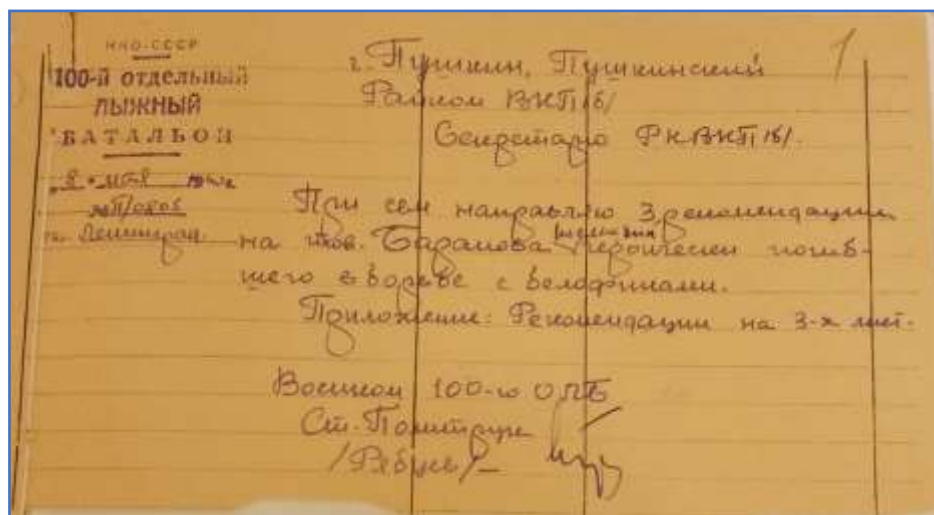 НКО-СССР
100-й ОТДЕЛЬНЫЙ
ЛЫЖНЫЙ
БАТАЛЬОН
"8" мая
гор. Ленинград
1
г. Пушкин, Пушкинский
Райком ВКП/б/
Секретарю РК ВКП/б/.
При сем направляю 3 рекомендации
на тов. Баранова героически погиб-
шего в борьбе с белофинами.
Приложение: Рекомендации на 3-х лист.
Военком 100-го ОЛБ
Ст. Политрук